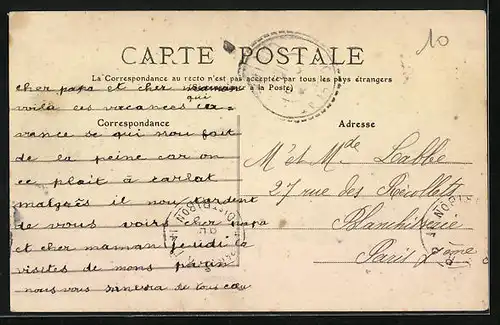 10
CARTE POSTALE
(La Correspondance au recto n'est pas acceptée par tous les pays étrangers
à la Poste)
cher papa et cher maman
voilà ces vacances qui
vance se qui nou fait
Correspondance
de la peine car on
ce plait à carlat
malgrès il nou tardent
de vous voir cher papa
et cher maman jeudi la
visites de mons
nous vous de tous
Adresse
Mr et Mde Labbe
27 rue des Recollets
Blanchisserie
Paris